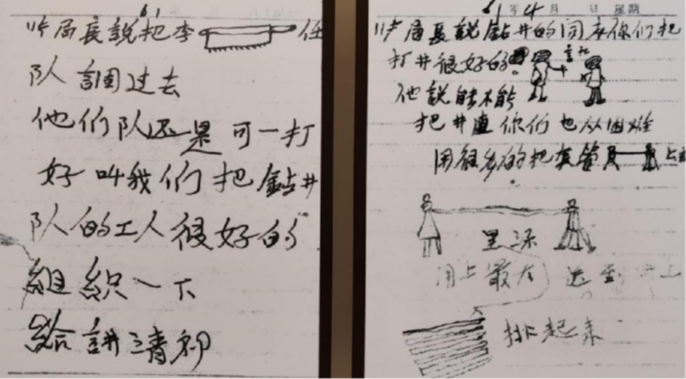 61
11 局長說把李 任
队調过去
他们队还是可一打
好叫我们把鉆井
队的工人很好的
組織一下
給講清初
61年4月 日 星期
11 局長說鉆井的 你们把
打井很好的
他說能不能
把井直你们也从困难
用很多的把 管 上
里深
用上最大 达到
排起来